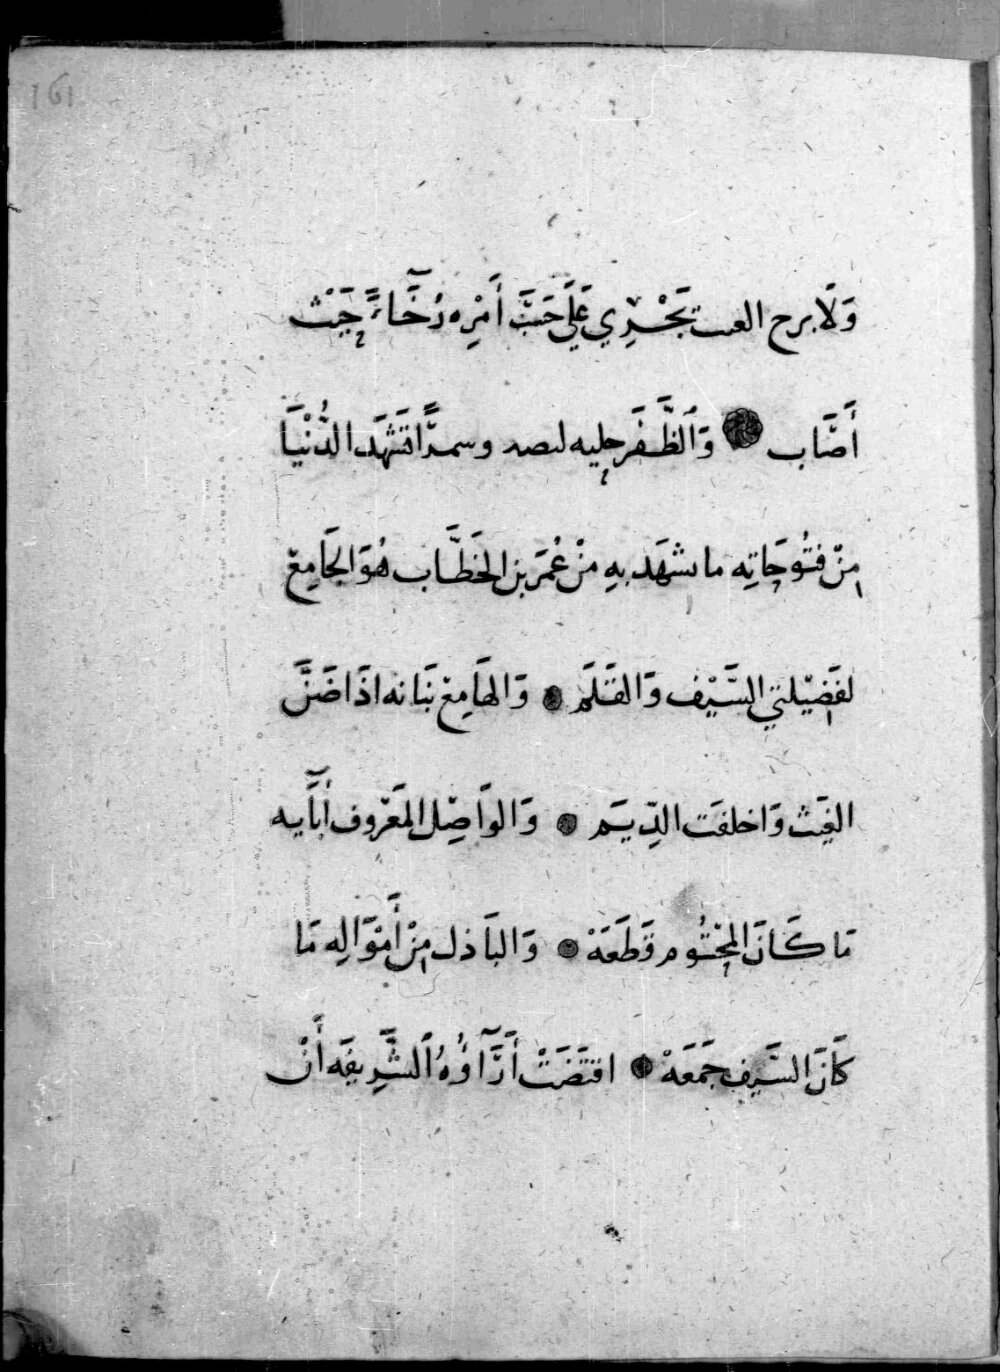 161
وَلَا برح العب تَجْرِي عَلَى حَسَبَ أَمْرِه رُخَآءً حَيْثُ
أَصَاب وَالظَّفَر حليه لنصه وسمدًا فتشهَدَ الدُّنْيَا
مِنْ فتُوحَاتِه ما شهَد بهِ مِنْ عُمَرَ بن الخَطَّاب هُوَ الجَامِعْ
لفَضِيْلتي السَّيْف وَالقَلَم وَالهَامِعْ بَنَانه اذَا ضَنَّ
الغَيْث وَاخلفَت الدِّيَم وَالوَاصِل المَعْرُوف بآرَآيه
مَا كَانَ المَحْتُوم قَطَعَهْ وَالبَاذل مِنْ أَمْوَالِه مَا
كَانَ السَّيف جَمَعَهْ اقتَضَتْ أَرَآؤُهُ الشَّرِيفَه أَنْ